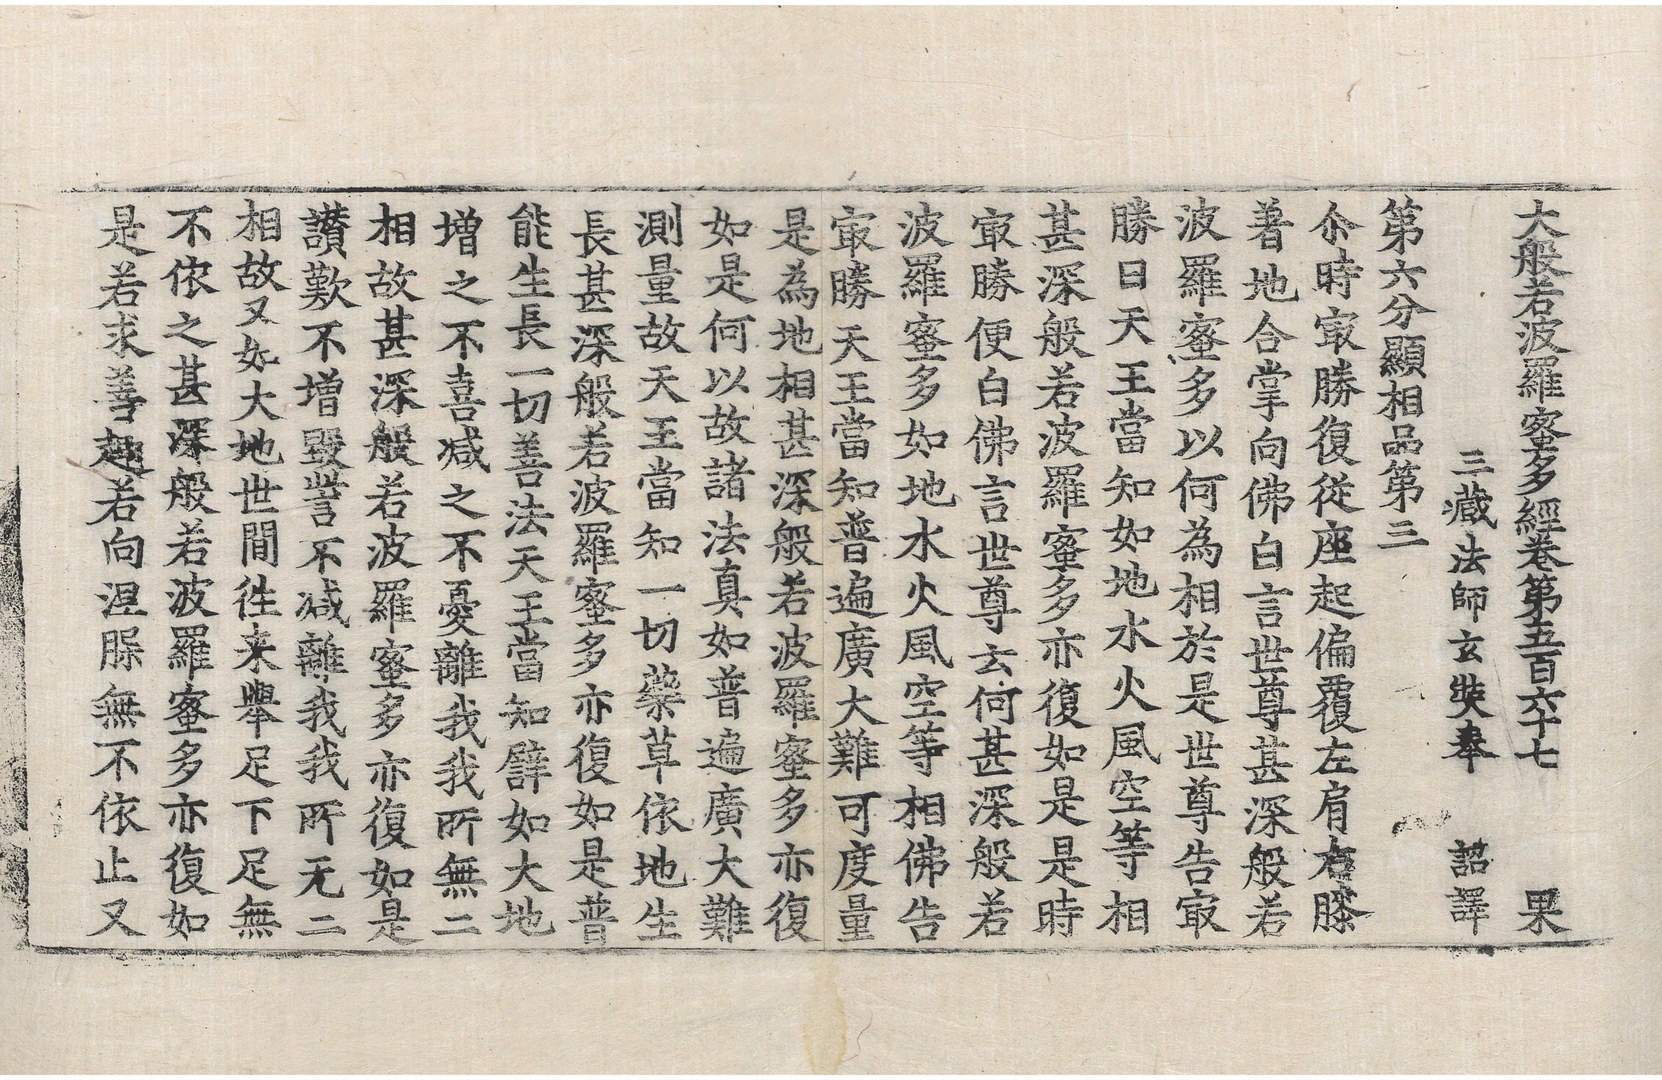 大般若波羅蜜多經卷第五百六十七 果
三藏法師玄奘奉 詔譯
第六分顯相品第三
尒時㝡勝復從座起偏覆左肩右膝
著地合掌向佛白言世尊甚深般若
波羅蜜多以何為相於是世尊告㝡
勝曰天王當知如地水火風空等相
甚深般若波羅蜜多亦復如是是時
㝡勝便白佛言世尊云何甚深般若
波羅蜜多如地水火風空等相佛告
㝡勝天王當知普遍廣大難可度量
是為地相甚深般若波羅蜜多亦復
如是何以故諸法真如普遍廣大難
測量故天王當知一切藥草依地生
長甚深般若波羅蜜多亦復如是普
能生長一切善法天王當知譬如大地
增之不喜減之不憂離我我所無二
相故甚深般若波羅蜜多亦復如是
讃歎不增毀訾不減離我我所无二
相故又如大地世間徃来舉足下足無
不依之甚深般若波羅蜜多亦復如
是若求善趣若向涅槃無不依止又